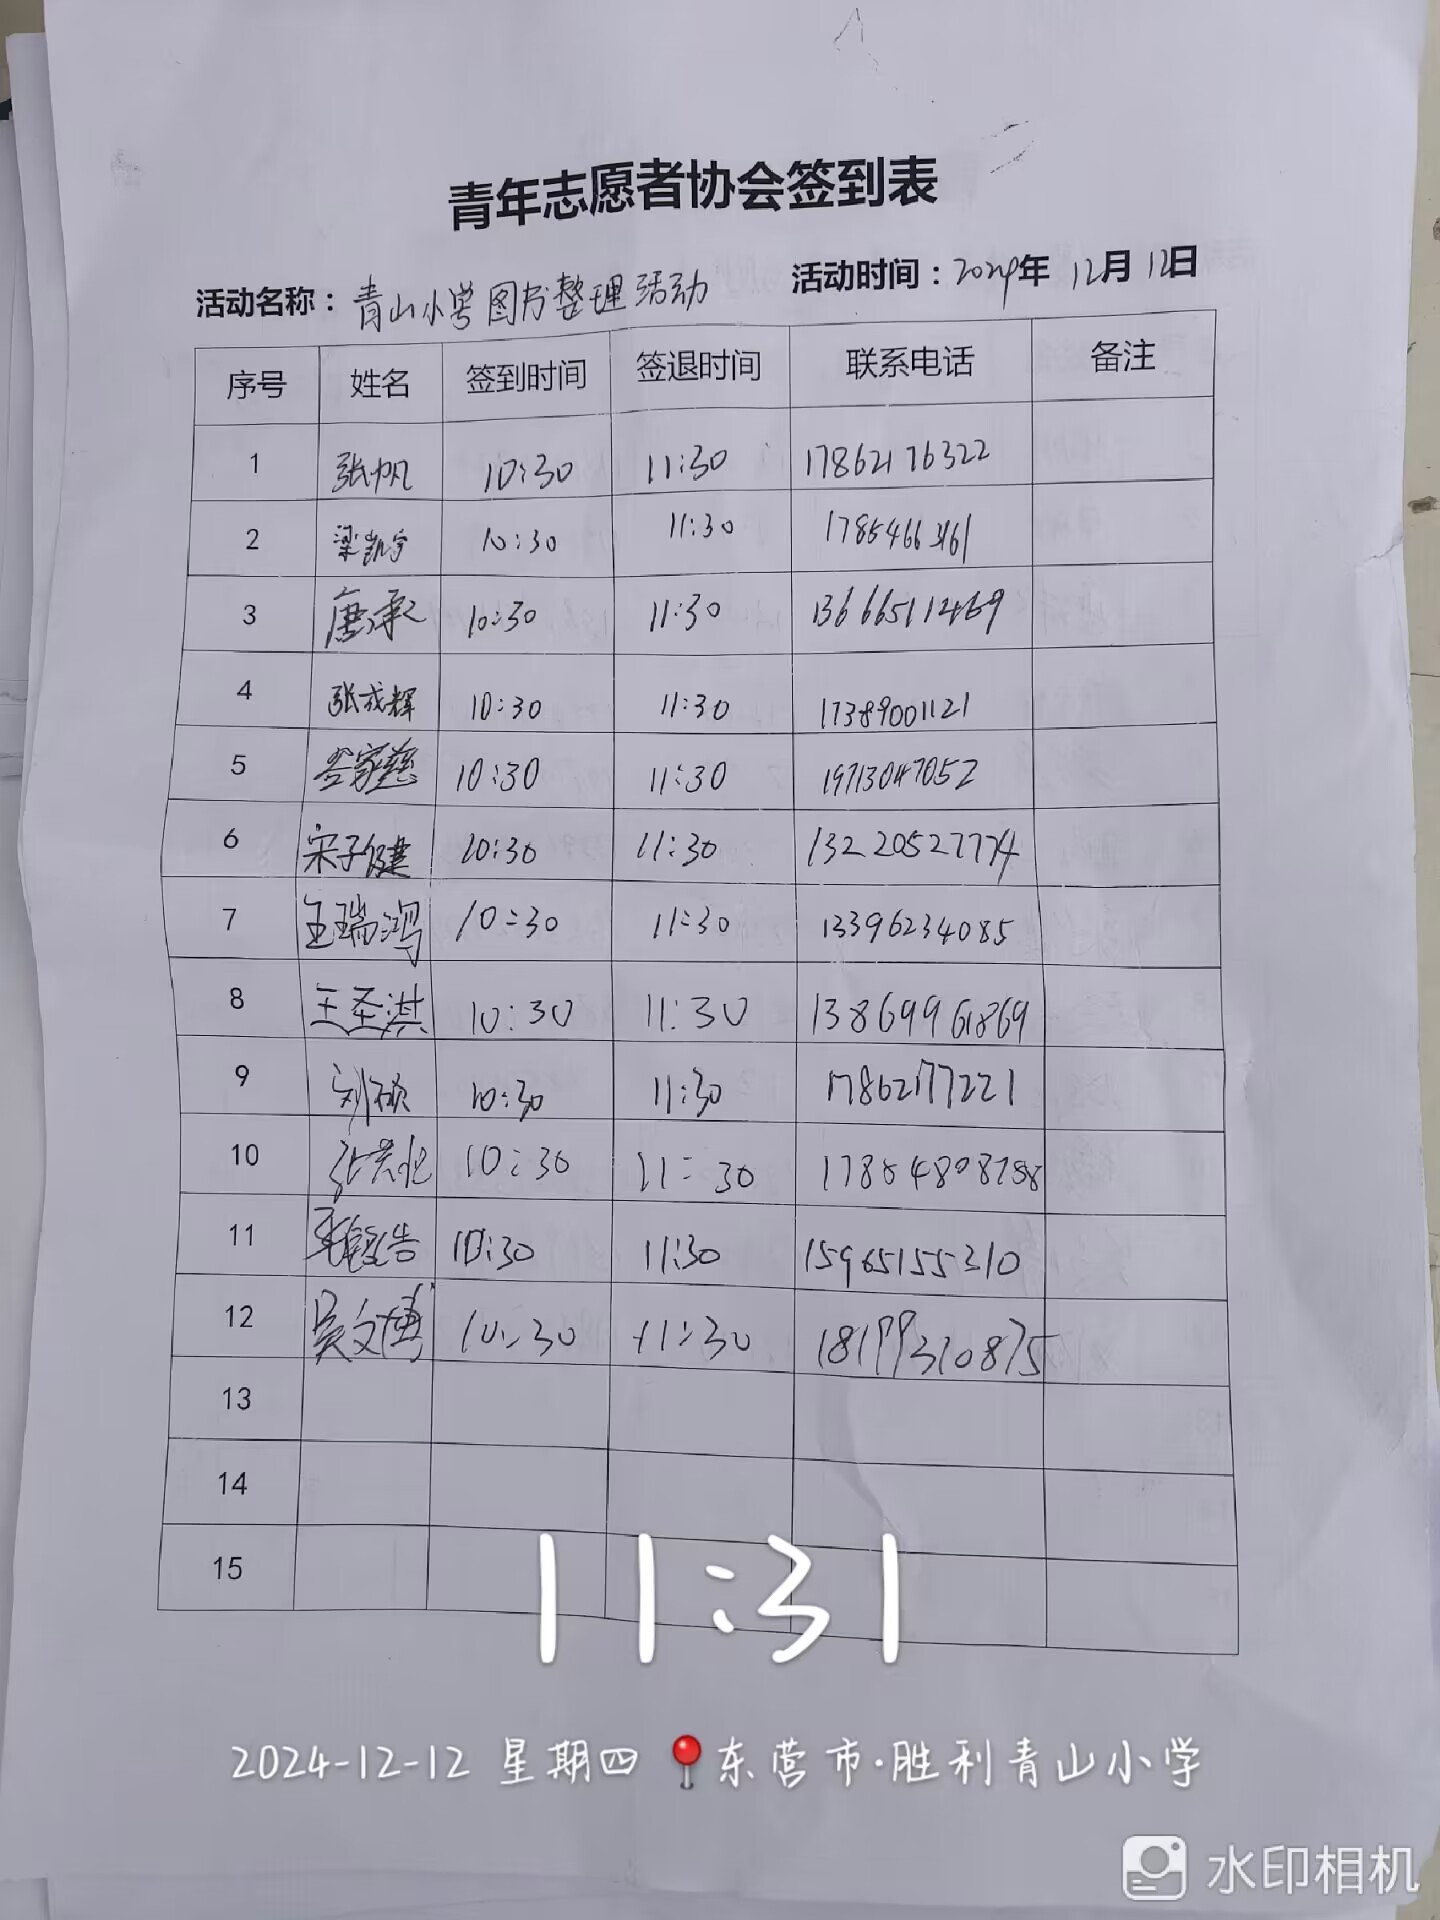 青年志愿者协会签到表
活动名称：青山小学图书整理活动 活动时间：2024年12月12日
序号 姓名 签到时间 签退时间 联系电话 备注
1 张帆 10:30 11:30 17862176322
2 梁凯宇 10:30 11:30
3 唐承 10:30 11:30 13666511469
4 张成辉 10:30 11:30 17389001121
5 谷家慈 10:30 11:30 19713047052
6 宋子健 10:30 11:30 13220527774
7 王瑞鸿 10:30 11:30 13396234085
8 王圣淇 10:30 11:30 13869961869
9 刘硕 10:30 11:30 17862177221
10 10:30 11:30
11 10:30 11:30 15965155310
12 吴文博 10:30 11:30 18199310875
13
14
15
11:31
2024-12-12 星期四 东营市·胜利青山小学
水印相机